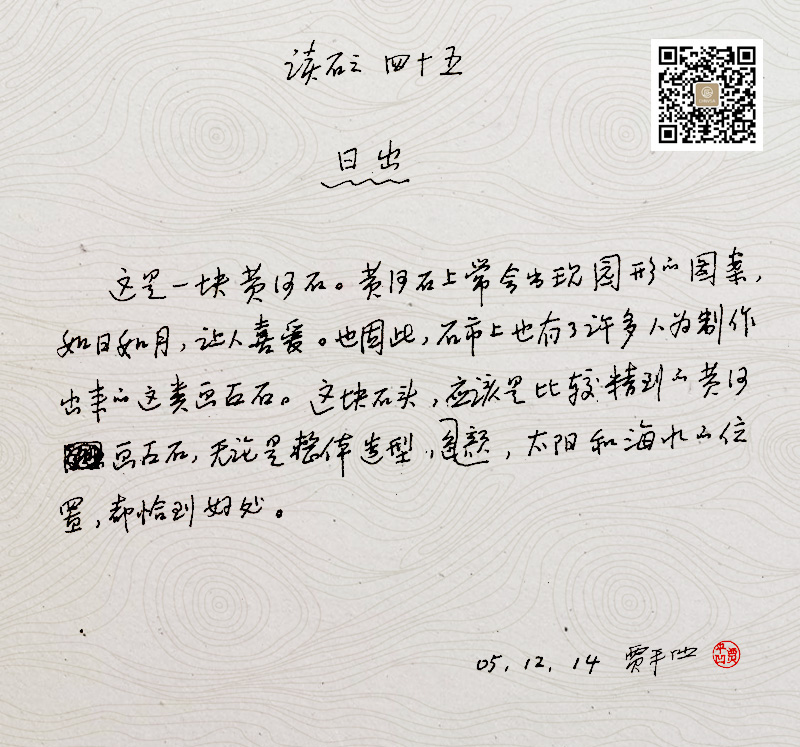 读石之四十五
日出
这是一块黄河石。黄河石上常会出现园形的图案,
如日如月,让人喜爱。也因此,石市上也有了许多人为制作
出来的这类画面石。这块石头,应该是比较精到的黄河
画面石,无论是整体造型,颜色,太阳和海水的位
置,都恰到好处。
05.12.14 贾平凹
贾平凹